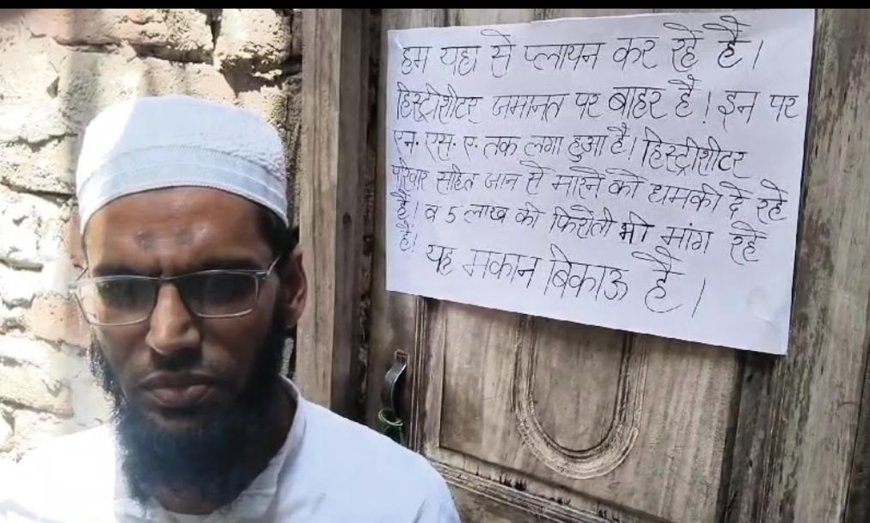 हम यहा से प्लायन कर रहे है।
हिस्ट्रीशीटर जमानत पर बाहर है। इन पर
एन. एस. ए. तक लगा हुआ है। हिस्ट्रीशीटर
परिवार सहित जान से मारने की धमकी दे रहे
है। व 5 लाख की फिरौती भी मांग रहे
है।
यह मकान बिकाऊ है।